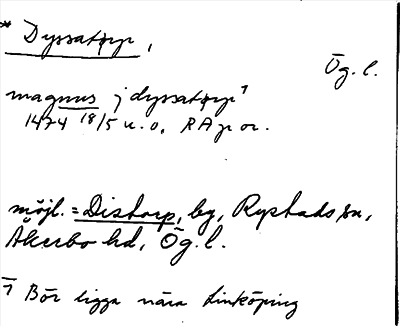 * Dyssatorp,
Ög. l.
magnus j dyssatorp ¹
1474 18/5 u. o, RAp or.
möjl. = Distorp, by, Rystads sn,
Åkerbo hd, Ög. l.
1 Bör ligga nära Linköping